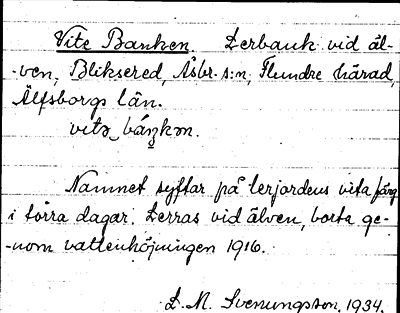 Vite Banken. Lerbank vid äl-
-ven, Bliksered, Åsbr. s:n, Flundre härad,
Älfsborgs län.
vitə báŋkən.
Namnet syftar på lerjordens vita färg
i torra dagar. Lerras vid älven, borta ge-
-nom vattenhöjningen 1916.
L. M. Svenungsson, 1934.